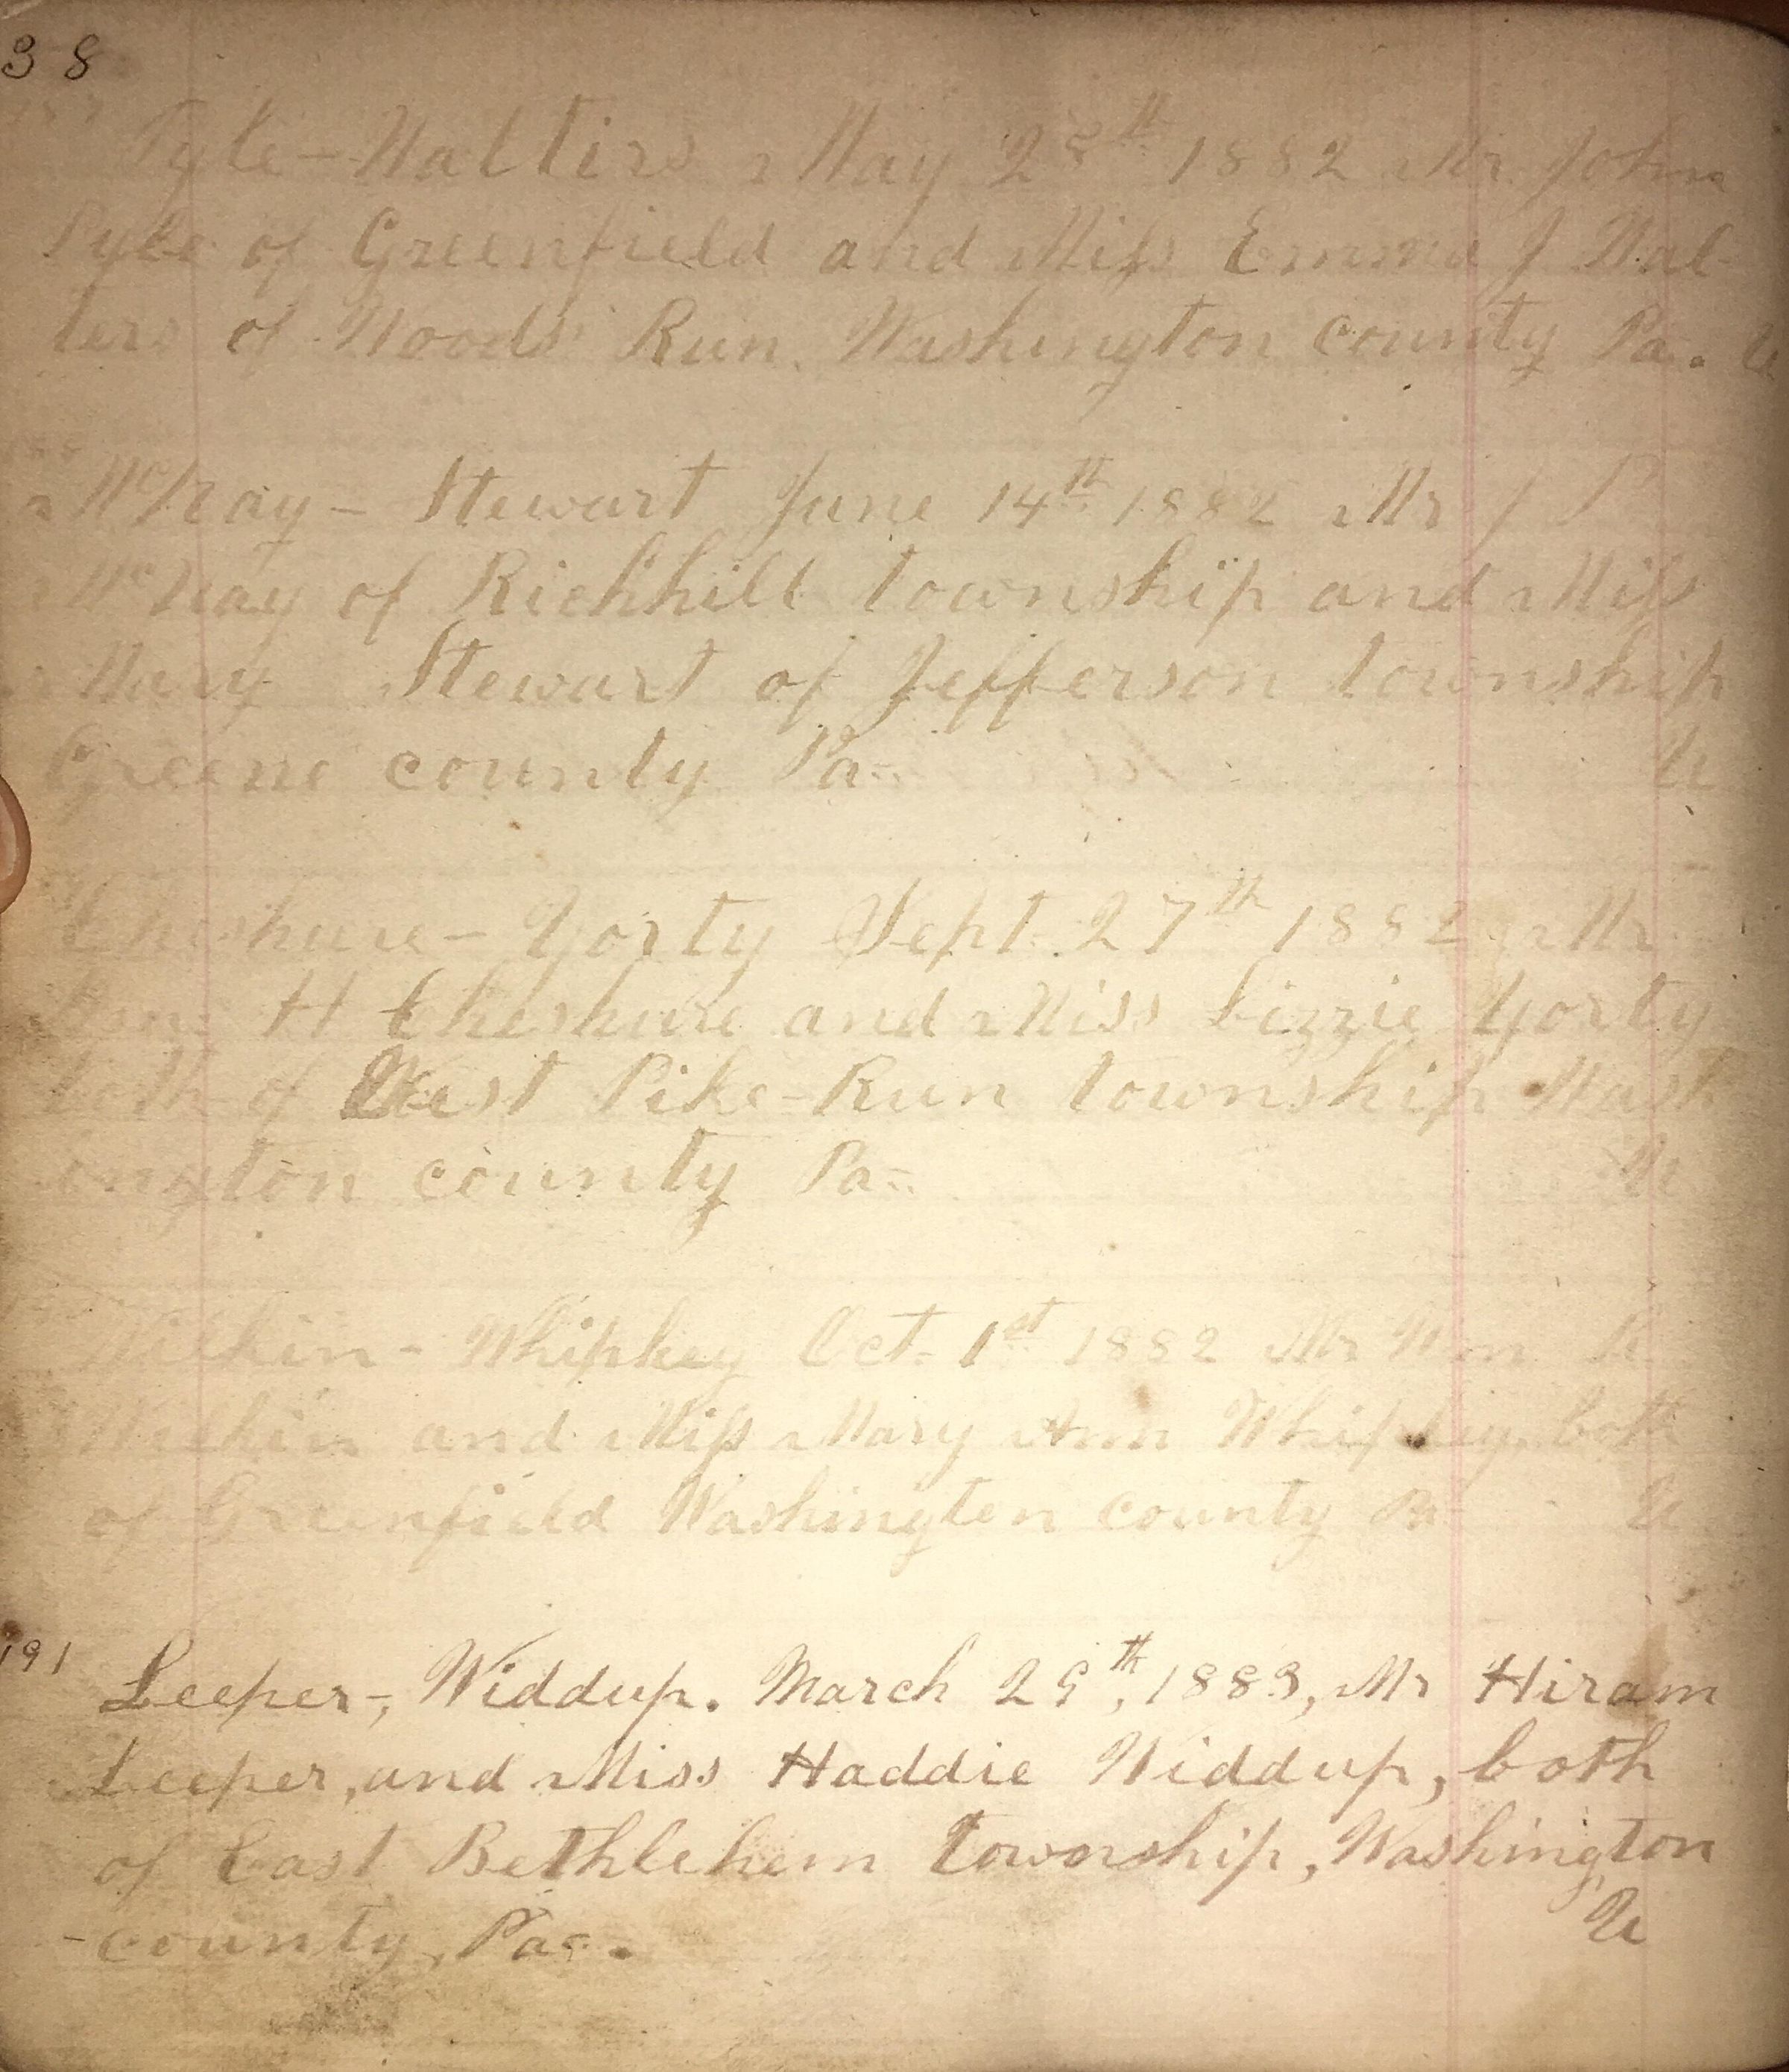 38
187
Pyle - Walters May 28th 1882 Mr. John
Pyle of Greenfield and Miss Emma J Wal-
ters of Woods Run. Washington county Pa. U
188
McNay - Stewart June 14th 1882 Mr J P
McNay of Richhill township and Miss
Mary Stewart of Jefferson township
Greene county Pa- U
Cheshure - Yorty Sept. 27th 1882 Mr
Wm H Cheshure and Miss Lizzie Yorty
both of West Pike-Run township Wash
ington county Pa- U
- Whipkey Oct. 1st 1882 Mr Wm
and Miss Mary Ann Whipkey both
of Greenfield Washington county Pa U
191
Leeper-, Widdup. March 29th, 1883, Mr Hiram
Leeper, and Miss Haddie Widdup, both
of East Bethlehem township, Washington
-county, Pa-. U